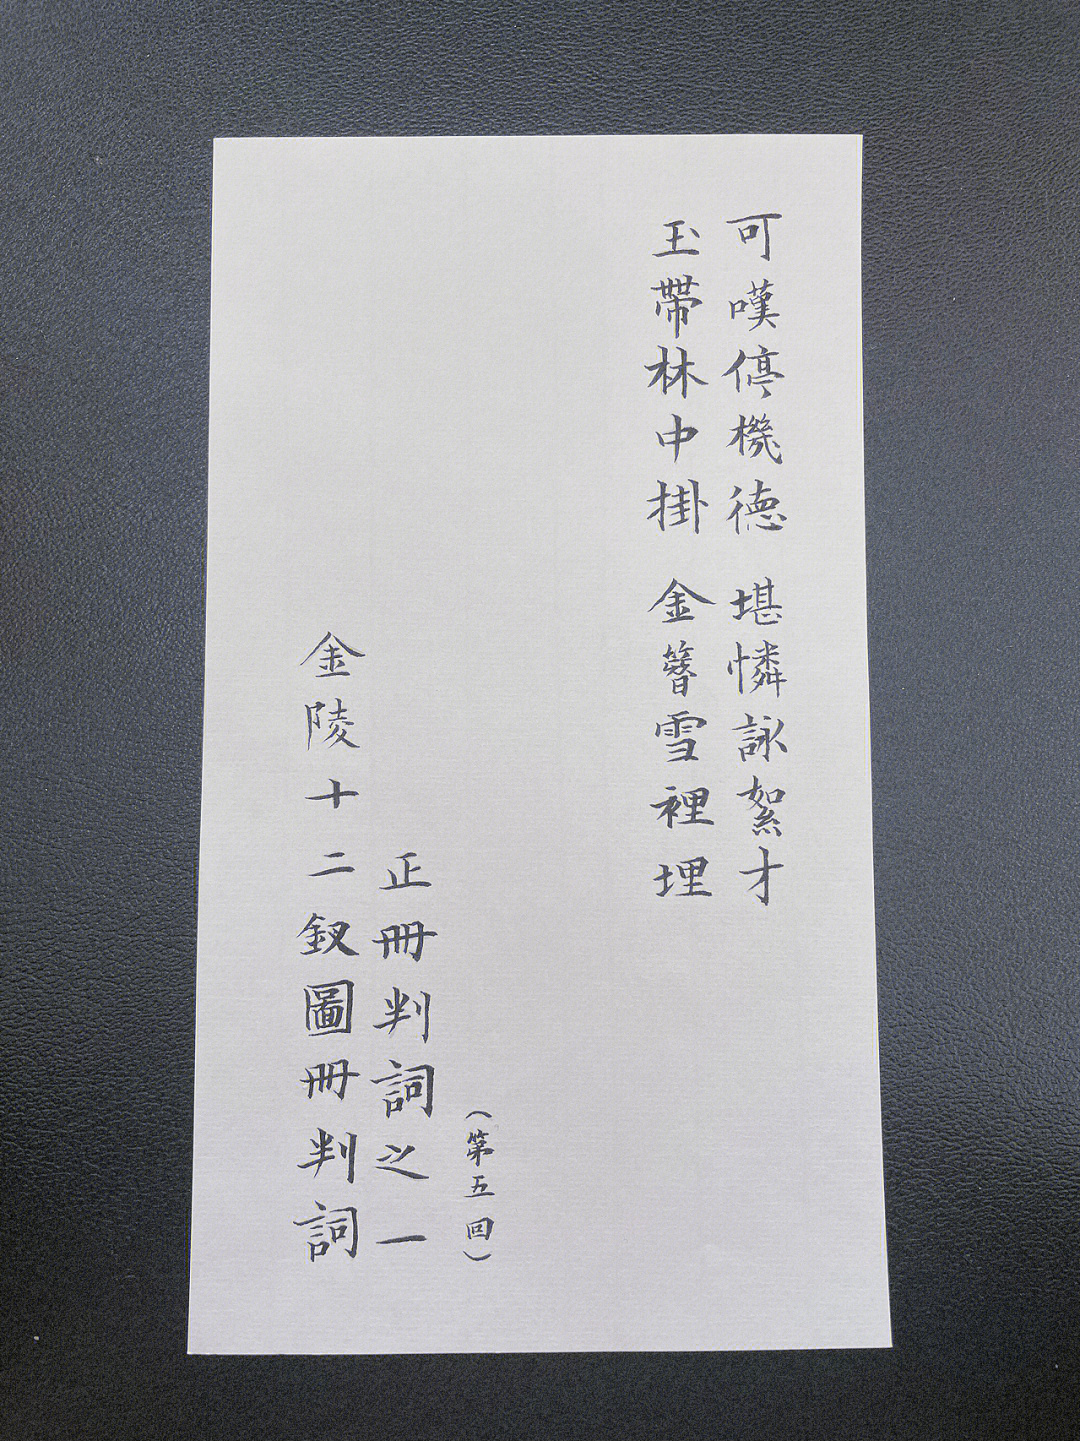 可嘆停機德 堪憐詠絮才
玉帶林中掛 金簪雪裡埋
（第五回）
正冊判詞之一
金陵十二釵圖冊判詞